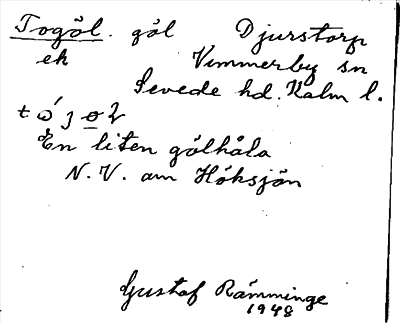 Togöl. göl Djurstorp
ek Vimmerby sn
Sevede hd. Kalm l.
En liten gölhåla
N. V. om Höksjön
Gustaf Rämminge
1948